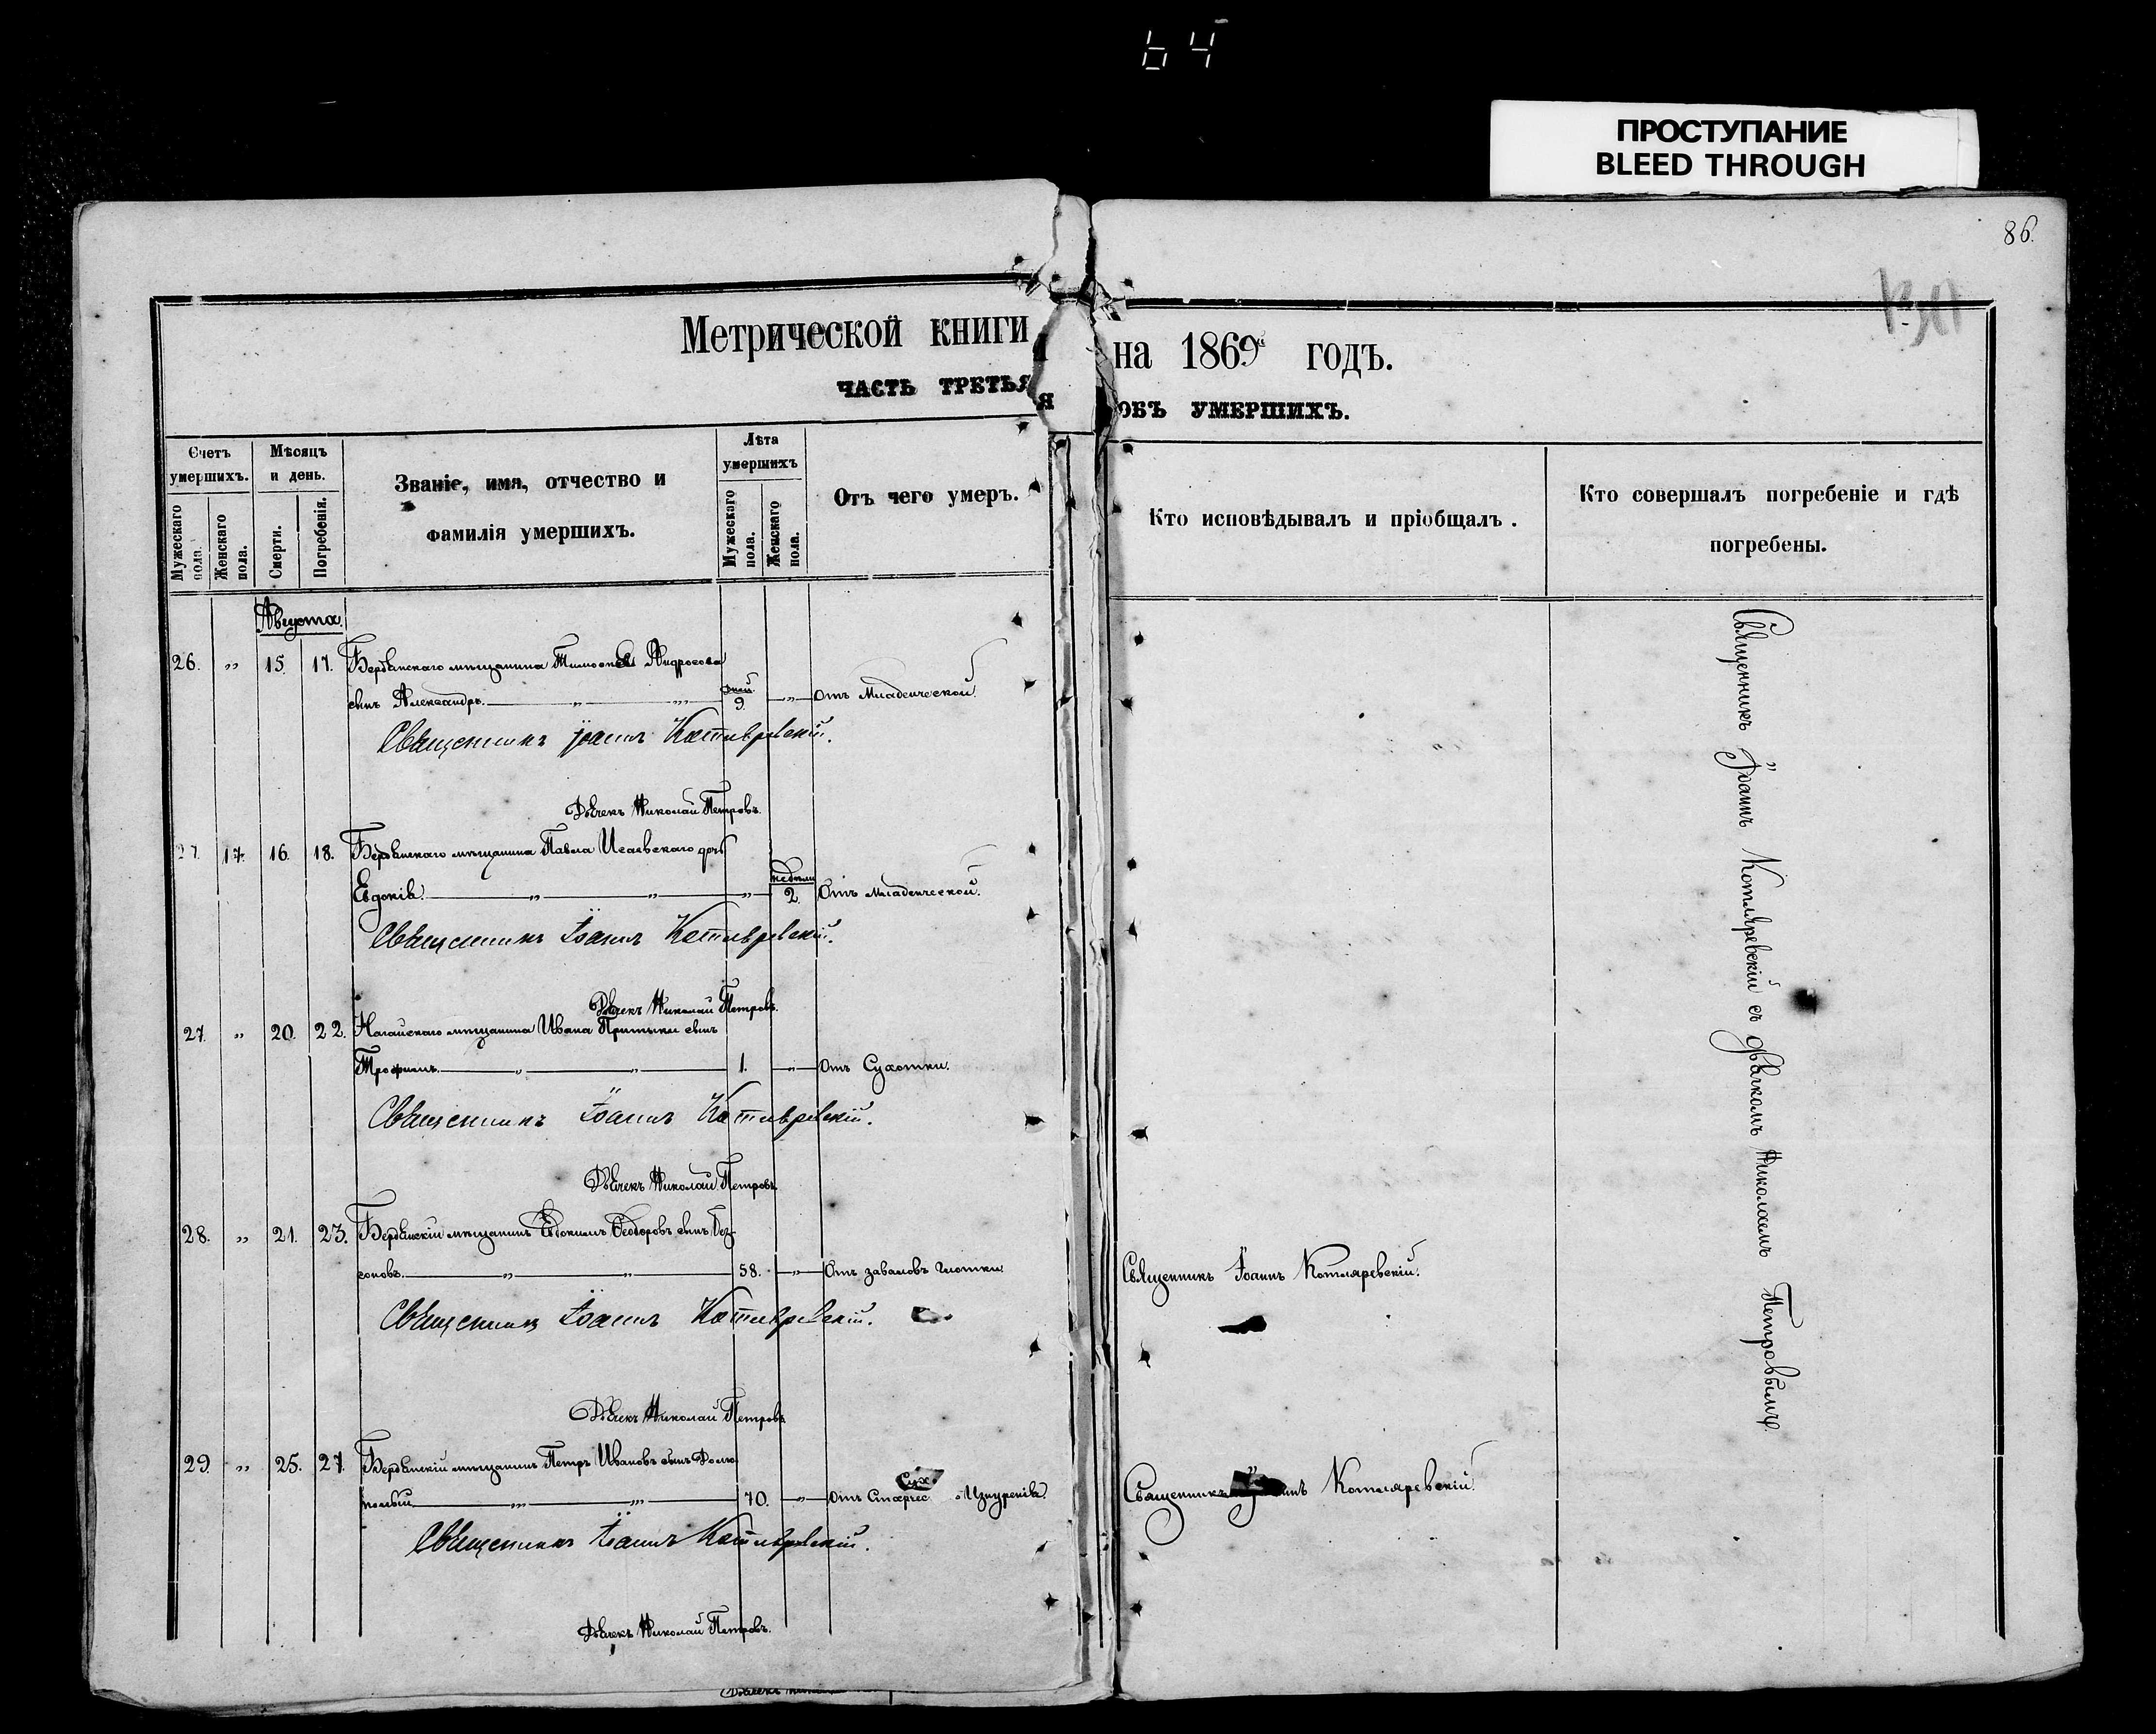 64
ПРОСТУПАНИЕ
BLEED THROUGH
86.
Метрической книги на 1869й годъ.
ЧАСТЬ ТРЕТЬЯ ОБЪ УМЕРШИХЪ.
Счетъ умершихъ.
Мужескаго пола.
Женскаго пола.
Мѣсяцъ и день.
Смерти.
Погребенія.
Званіе, имя, отчество и
фамилія умершихъ.
Лѣта умершихъ
Мужескаго пола.
Женскаго пола.
Отъ чего умеръ.
Кто исповѣдывалъ и пріобщалъ.
Кто совершалъ погребеніе и гдѣ
погребены.
Августа.
26. „ 15. 17. Бердянскаго мѣщанина Тимофея Андросова
сынъ Александръ. „ „ дней 9. „ Отъ Младенческой.
Священникъ Іоаннъ Котляревскій.
Дьячекъ Николай Петровъ.
27. 17. 16. 18. Бердянскаго мѣщанина Павла Исаевскаго дочь
Евдокія. „ „ „ недѣли 2. Отъ Младенческой.
Священникъ Іоаннъ Котляревскій.
Дьячекъ Николай Петровъ.
27. „ 20. 22. Ногайскаго мѣщанина Ивана Притыки сынъ
Трофимъ. „ „ 1. „ Отъ Сухотки.
Священникъ Іоаннъ Котляревскій.
Дьячекъ Николай Петровъ.
28. „ 21. 23. Бердянскій мѣщанинъ Евдокимъ Феодоровъ сынъ
соновъ. „ „ 58. „ Отъ заваловъ глотки.
Священникъ Іоаннъ Котляревскій.
Священникъ Іоаннъ Котляревскій.
Дьячекъ Николай Петровъ.
29. „ 25. 27. Бердянскій мѣщанинъ Петръ Ивановъ сынъ
„ „ 70. „ Отъ Старчес Изнуренія.
Священникъ Іоаннъ Котляревскій.
Священникъ Іоаннъ Котляревскій.
Дьячекъ Николай Петровъ.
Священникъ Іоаннъ Котляревскій съ дьячкомъ Николаемъ Петровымъ.